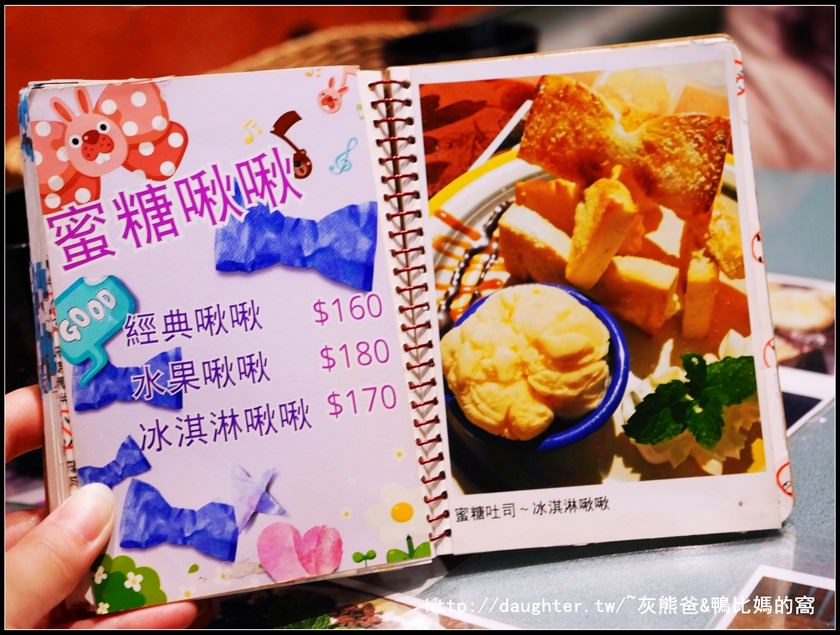 蜜糖啾啾
GOOD
經典啾啾 $160
水果啾啾 $180
冰淇淋啾啾 $170
蜜糖吐司~冰淇淋啾啾
http://daughter.tw/~灰熊爸&鴨比媽的窩